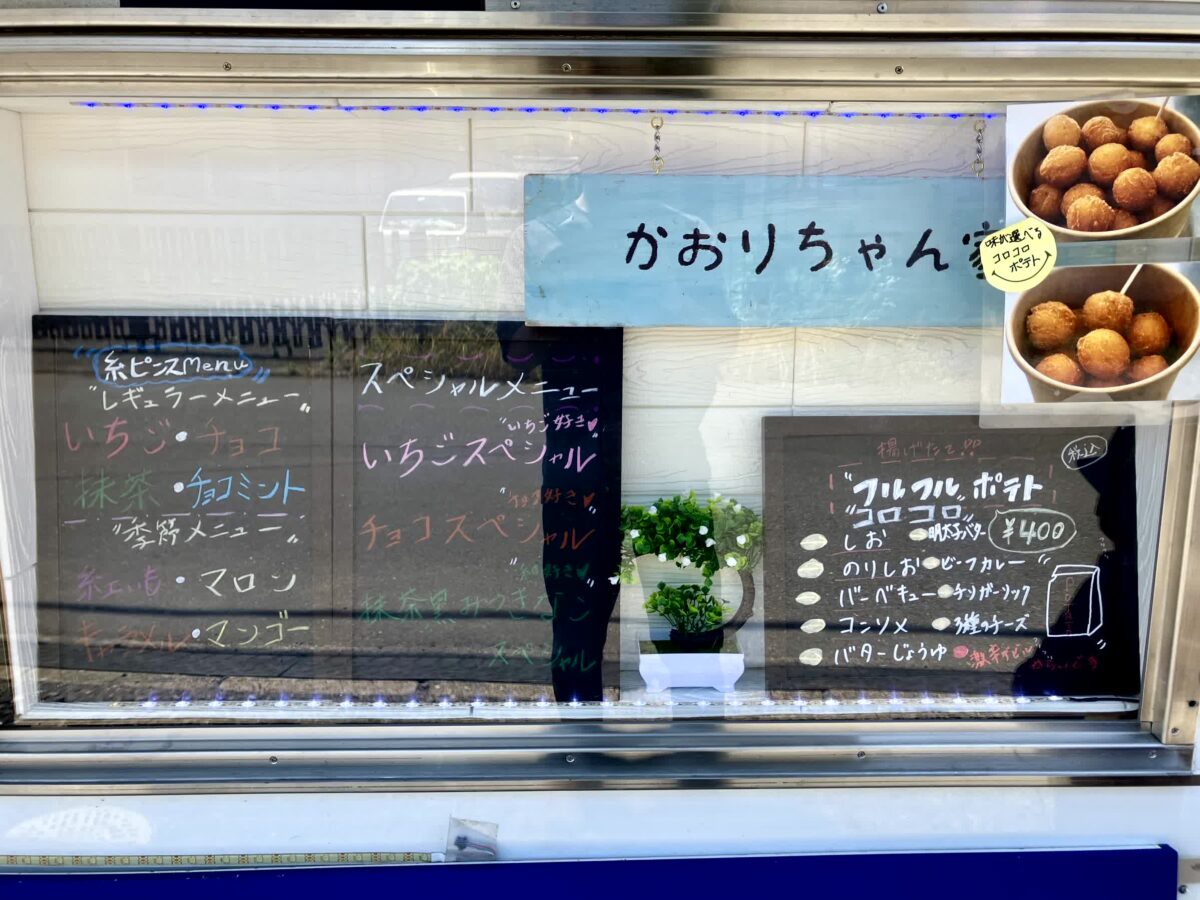 かおりちゃん
味が選べる
コロコロ
ポテト
糸ピンスMenu
"レギュラーメニュー"
いちご・チョコ
抹茶・チョコミント
"季節メニュー"
紅いも・マロン
キャラメル・マンゴー
スペシャルメニュー
"いちご好き"
いちごスペシャル
好き
チョコスペシャル
好き
抹茶黒みつきなこ
スペシャル
揚げたて!!
税込
"フルフル"ポテト
"コロコロ"
¥400
しお 明太子バター
のりしお ビーフカレー
バーベキュー チリガーリック
コンソメ 3種のチーズ
バターじょうゆ